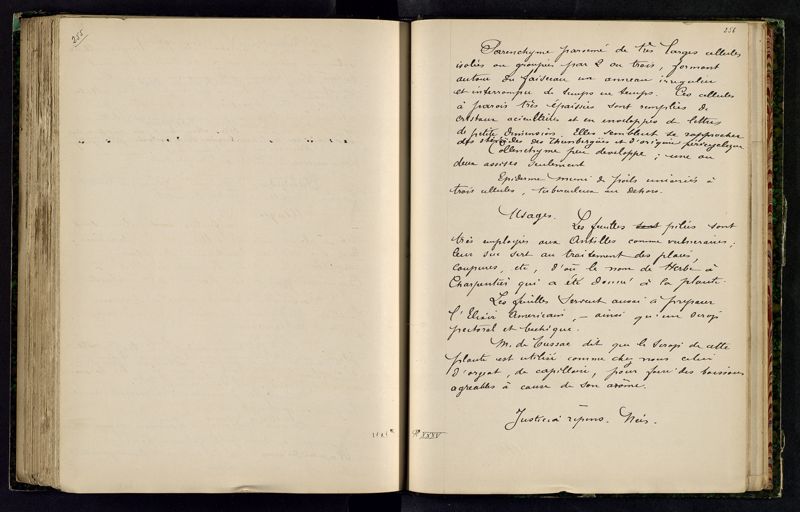 255
256
Parenchyme parsemé de très larges cellules
isolées ou groupées par 2 ou trois, formant
autour du faisceau un anneau irrégulier
et interrompu de temps en temps. Ces cellules
à parois très épaissies sont remplies de
cristaux aciculaires et en enveloppes de lettres
de petite dimension. Elles semblent se rapprocher
des des Thunbergiées et d'origine péricyclique
Collenchyme peu développé ; une ou
deux assises seulement
Epiderme muni de poils unisériés à
trois cellules, tuberculeux au dehors.
Usages. Les feuilles sont pilées sont
très employées aux Antilles comme vulneraires ;
leur suc sert au traitement des plaies,
coupures, etc, d'où le nom de Herbe à
Charpentier qui a été donné à la plante.
Les feuilles servent aussi à préparer
l'Elixir Américain, – ainsi qu'un sirop
pectoral et bechique.
M. de Tussac dit que le sirop de cette
plante est utilisé comme chez nous celui
d'orgeat, de capillaire, pour faire des boissons
agréables à cause de son arôme.
Justicia repens. Nees.
Pl XXXV